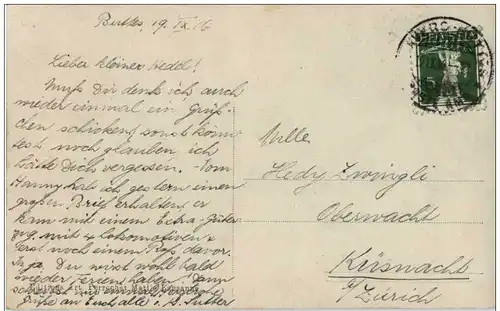 Buttes, 19. IX. 16
Lieber kleiner Hedd!
Muß Dir denk ich auch
wieder einmal ein Grüß-
chen schicken sonst könn
test noch glauben ich
hätte Dich vergessen. Vom
Hanny hab ich gestern einen
großen Brief erhalten er
kam mit einem Extra-Güter
zug mit 4 Lokomotiven &
erst noch einem Roß davor.
In ja. Du wirst wohl bald
wieder Ferien haben. Dann
schreibst mir einmal
Grüße an Euch alle!
Mlle
Hedy Zwingli
Oberwacht
Küsnacht
b/Zürich